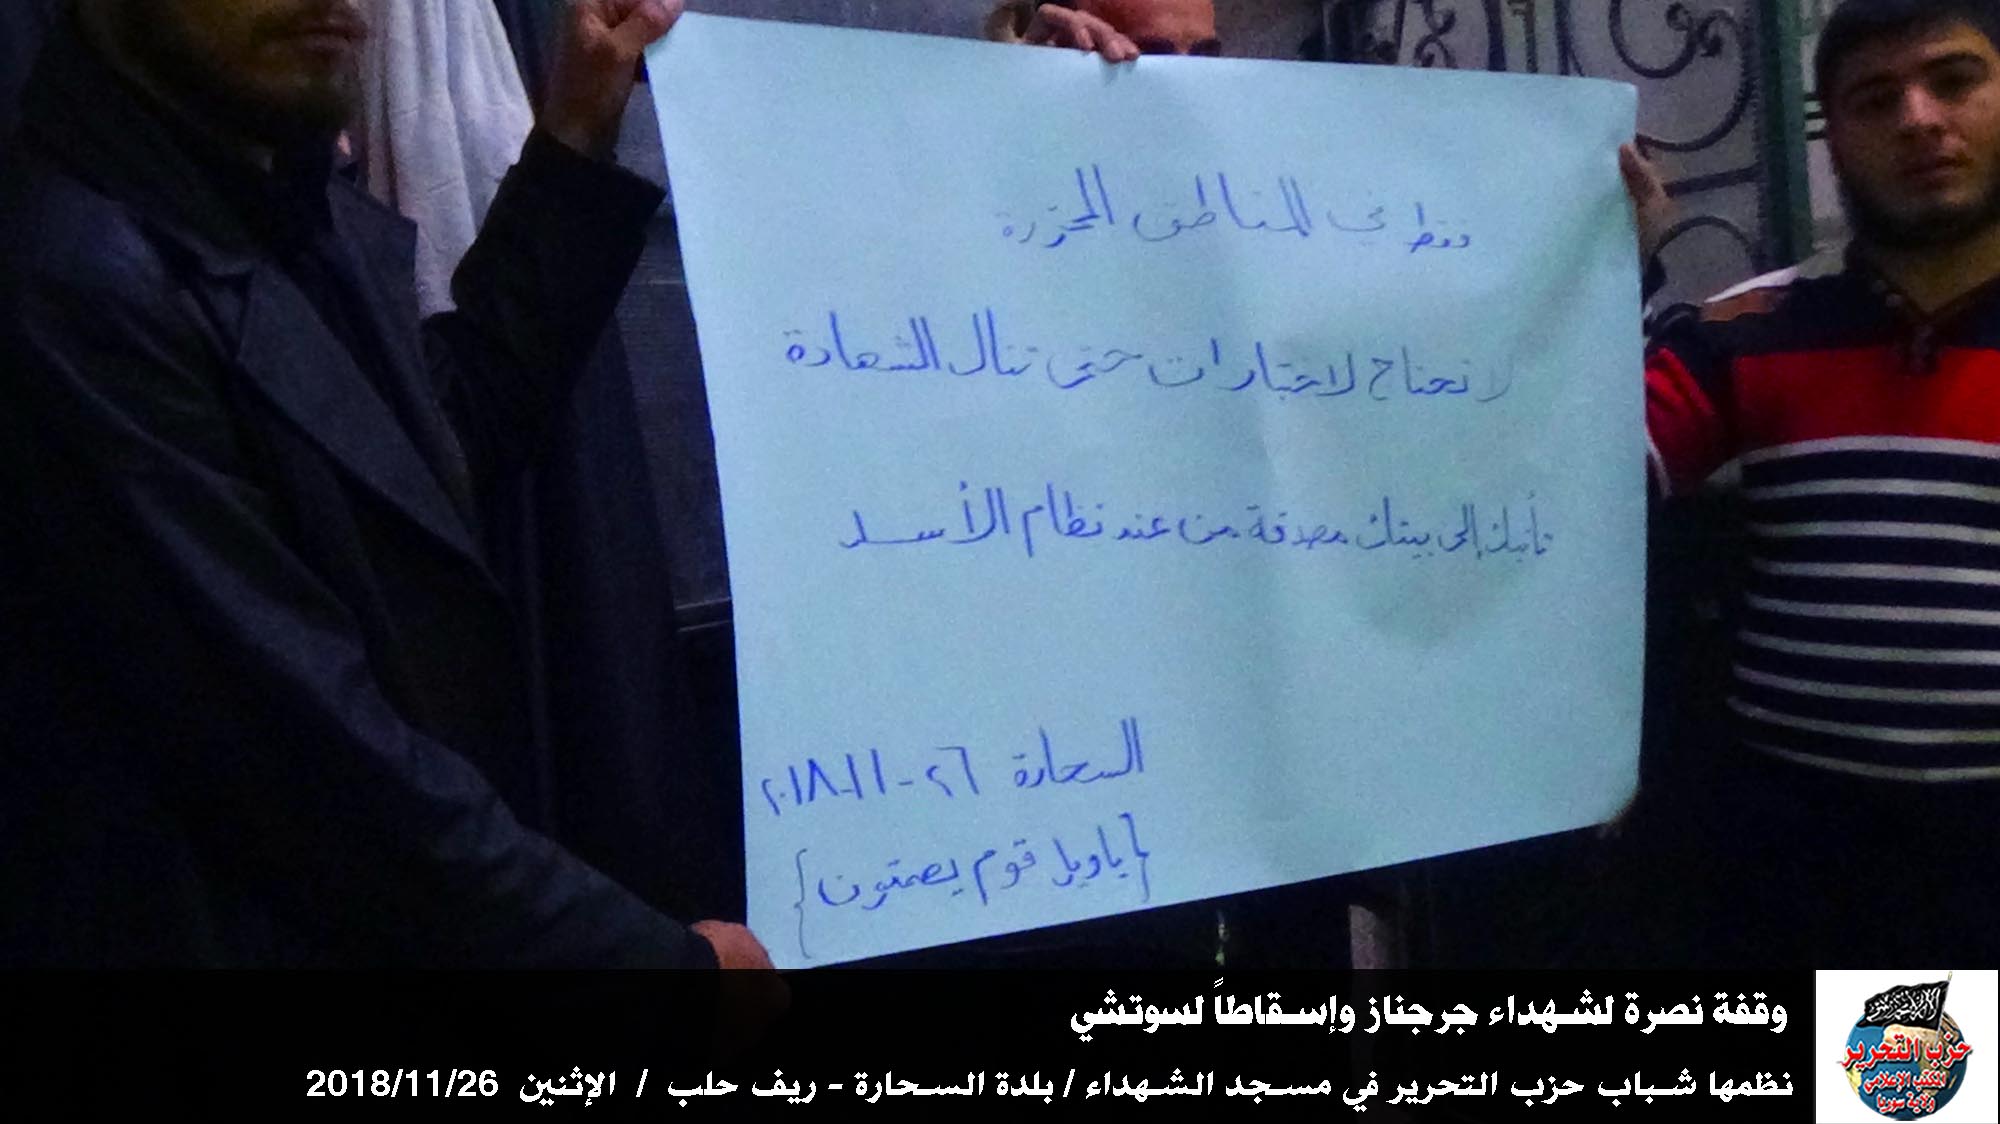 فقط في المناطق المحررة
لا تحتاج لاختبارات حتى تنال الشهادة
تأتيك إلى بيتك مصدقة من عند نظام الأسد
السحارة ٢٦-١١-٢٠١٨
{ياويل قوم يصمتون}
وقفة نصرة لشهداء جرجناز وإسقاطاً لسوتشي
نظمها شباب حزب التحرير في مسجد الشهداء / بلدة السحارة - ريف حلب / الإثنين 2018/11/26
حزب التحرير
المكتب الإعلامي
ولاية سوريا